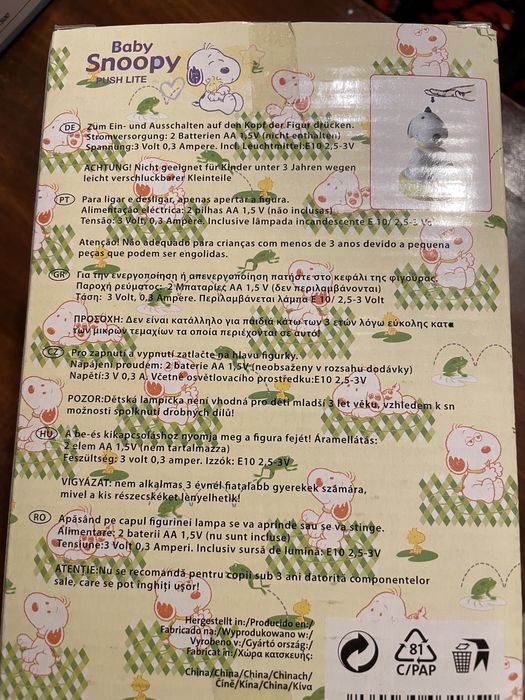 Baby
Snoopy
PUSH LITE
DE Zum Ein- und Ausschalten auf den Kopf der Figur drücken.
Stromversorgung: 2 Batterien AA 1,5V (nicht enthalten)
Spannung:3 Volt 0,3 Ampere. Incl. Leuchtmittel:E10 2,5-3V
ACHTUNG! Nicht geeignet für Kinder unter 3 Jahren wegen
leicht verschluckbarer Kleinteile
PT Para ligar e desligar, apenas apertar a figura.
Alimentação eléctrica: 2 pilhas AA 1,5 V (não inclusas)
Tensão: 3 Volt, 0,3 Ampere. Inclusive lâmpada incandescente E 10/ 2,5-3 Volt
Atenção! Não adequado para crianças com menos de 3 anos devido a pequena
peças que podem ser engolidas.
GR Για την ενεργοποίηση ή απενεργοποίηση πατήστε στο κεφάλι της φιγούρας.
Παροχή ρεύματος: 2 Μπαταρίες AA 1,5V (δεν περιλαμβάνονται)
Τάση: 3 Volt, 0,3 Ampere. Περιλαμβάνεται λάμπα E 10/ 2,5-3 Volt
ΠΡΟΣΟΧΗ: Δεν είναι κατάλληλο για παιδιά κάτω των 3 ετών λόγω εύκολης κατα
των μικρών τεμαχίων τα οποία περιέχονται σε αυτό!
CZ Pro zapnutí a vypnutí zatlačte na hlavu figurky.
Napájení proudem: 2 baterie AA 1,5V (neobsaženy v rozsahu dodávky)
Napětí:3 V 0,3 A. Včetně osvětlovacího prostředku:E10 2,5-3V
POZOR:Dětská lampička není vhodná pro děti mladší 3 let věku, vzhledem k sn
možnosti spolknutí drobných dílů!
HU A be-és kikapcsoláshoz nyomja meg a figura fejét! Áramellátás:
2 elem AA 1,5V (nem tartalmazza)
Feszültség: 3 volt 0,3 amper. Izzók: E10 2,5-3V
VIGYÁZAT: nem alkalmas 3 évnél fiatalabb gyerekek számára,
mivel a kis részecskéket lenyelhetik!
RO Apăsând pe capul figurinei lampa se va aprinde sau se va stinge.
Alimentare: 2 baterii AA 1,5V (nu sunt incluse)
Tensiune:3 Volt 0,3 Amperi. Inclusiv sursă de lumină: E10 2,5-3V
ATENTIE:Nu se recomandă pentru copii sub 3 ani datorită componentelor
sale, care se pot înghiți ușor!
Hergestellt in:/Producido en:/
Fabricado na:/Wyprodukowano w:/
Vyrobeno v:/Gyártó ország:/
Fabricat in:/Χώρα κατοκευής:
China/China/China/Chinach/
Čině/Kína/China/Κίνα
81
C/PAP